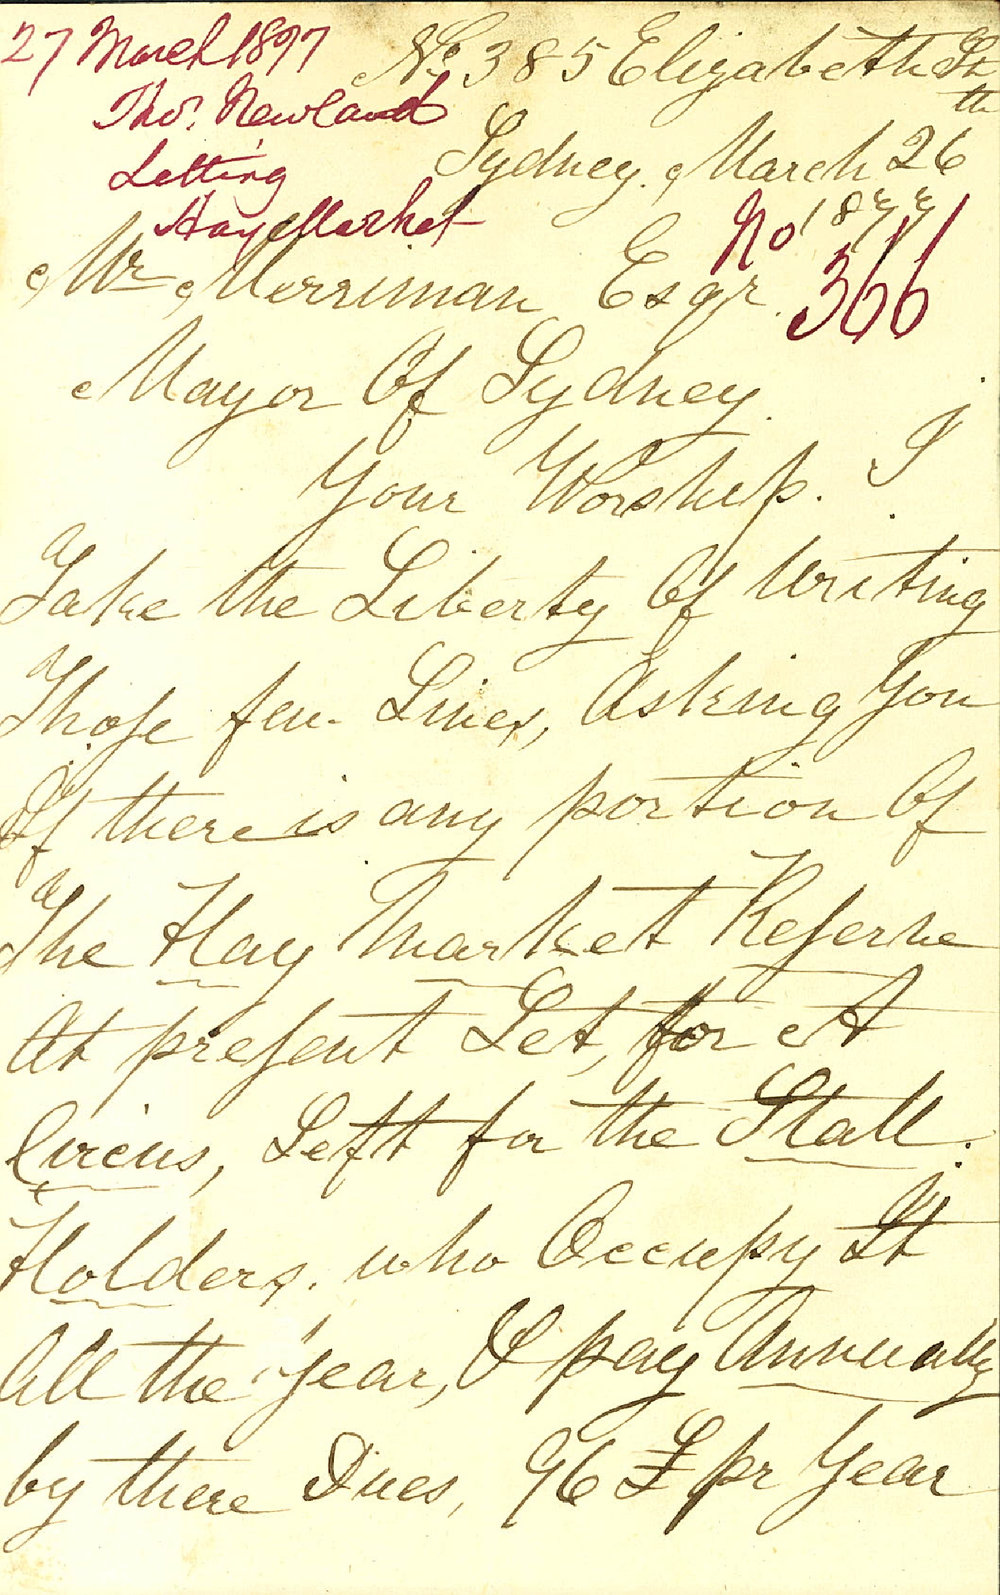 27 March 1877
Thos. Newland
Letting
Hay Market
No 366
No 385 Elizabeth St
Sydney. March 26th
1877
Mr Merriman Esqr.
Mayor Of Sydney.
Your Worship. I
Take the Liberty Of Writing
Those few Lines, Asking You
If there is any portion Of
The Hay Market Reserve
At present Let, for A
Circus, Left for the Stall.
Holders. who Occupy It
All the Year, & pay Annually
by there Dues, 96 £ pr Year